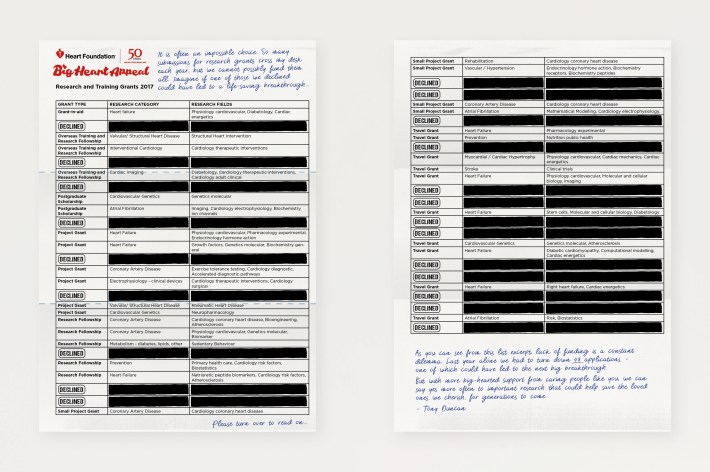 Heart Foundation
50
Big Heart Appeal
Research and Training Grants 2017
It is often an impossible choice. So many
submissions for research grants cross my desk
each year, but we cannot possibly fund them
all. Imagine if one of those we declined
could have led to a life-saving breakthrough.
GRANT TYPE RESEARCH CATEGORY RESEARCH FIELDS
Grant-in-aid Heart failure Physiology cardiovascular, Diabetology, Cardiac
energetics
DECLINED
Overseas Training and Valvular/ Structural Heart Disease Structural Heart Intervention
Research Fellowship
Overseas Training and Interventional Cardiology Cardiology therapeutic interventions
Research Fellowship
DECLINED
Overseas Training and Cardiac Imaging Diabetology, Cardiology therapeutic interventions,
Research Fellowship Cardiology adult clinical
DECLINED
Postgraduate Cardiovascular Genetics Genetics molecular
Scholarship
Postgraduate Atrial Fibrillation Imaging, Cardiology electrophysiology, Biochemistry
Scholarship ion channels
DECLINED
Project Grant Heart Failure Physiology cardiovascular, Pharmacology experimental,
Endocrinology hormone action
Project Grant Heart Failure Growth factors, Genetics molecular, Biochemistry gen-
eral
DECLINED
Project Grant Coronary Artery Disease Exercise tolerance testing, Cardiology diagnostic,
Accelerated diagnostic pathways
Project Grant Electrophysiology - clinical devices Cardiology therapeutic interventions, Cardiology
surgeon
DECLINED
Project Grant Valvular/ Structural Heart Disease Rheumatic Heart Disease
Project Grant Cardiovascular Genetics Neuropharmacology
Research Fellowship Coronary Artery Disease Cardiology coronary heart disease, Bioengineering,
Atherosclerosis
Research Fellowship Coronary Artery Disease Physiology cardiovascular, Genetics molecular,
Biomarker
Research Fellowship Metabolism - diabetes, lipids, other Sedentary Behaviour
DECLINED
Research Fellowship Prevention Primary health care, Cardiology risk factors,
Biostatistics
Research Fellowship Heart Failure Natriuretic peptide biomarkers, Cardiology risk factors,
Atherosclerosis
DECLINED
DECLINED
Small Project Grant Coronary Artery Disease Cardiology coronary heart disease
Please turn over to read on...
Small Project Grant Rehabilitation Cardiology coronary heart disease
Small Project Grant Vascular / Hypertension Endocrinology hormone action, Biochemistry
receptors, Biochemistry peptides
DECLINED
DECLINED
Small Project Grant Coronary Artery Disease Cardiology coronary heart disease
Small Project Grant Atrial Fibrillation Mathematical Modelling, Cardiology electrophysiology,
DECLINED
Travel Grant Heart Failure Pharmacology experimental
Travel Grant Prevention Nutrition public health
DECLINED
Travel Grant Myocardial / Cardiac Hypertrophy Physiology cardiovascular, Cardiac mechanics, Cardiac
energetics
Travel Grant Stroke Clinical trials
Travel Grant Heart Failure Physiology cardiovascular, Molecular and cellular
biology, Imaging
DECLINED
DECLINED
Travel Grant Heart Failure Stem cells, Molecular and cellular biology, Diabetology
DECLINED
DECLINED
Travel Grant Cardiovascular Genetics Genetics molecular, Atherosclerosis
Travel Grant Heart Failure Diabetic cardiomyopathy, Computational modelling,
Cardiac energetics
DECLINED
DECLINED
Travel Grant Heart Failure Right heart failure, Cardiac energetics
DECLINED
DECLINED
Travel Grant Atrial Fibrillation Risk, Biostatistics
DECLINED
As you can see from this list excerpt, lack of funding is a constant
dilemma. Last year alone we had to turn down 98 applications -
one of which could have led to the next big breakthrough.
But with more big-hearted support from caring people like you we can
say yes more often to important research that could help save the loved
ones we cherish, for generations to come.
- Tony Duncan